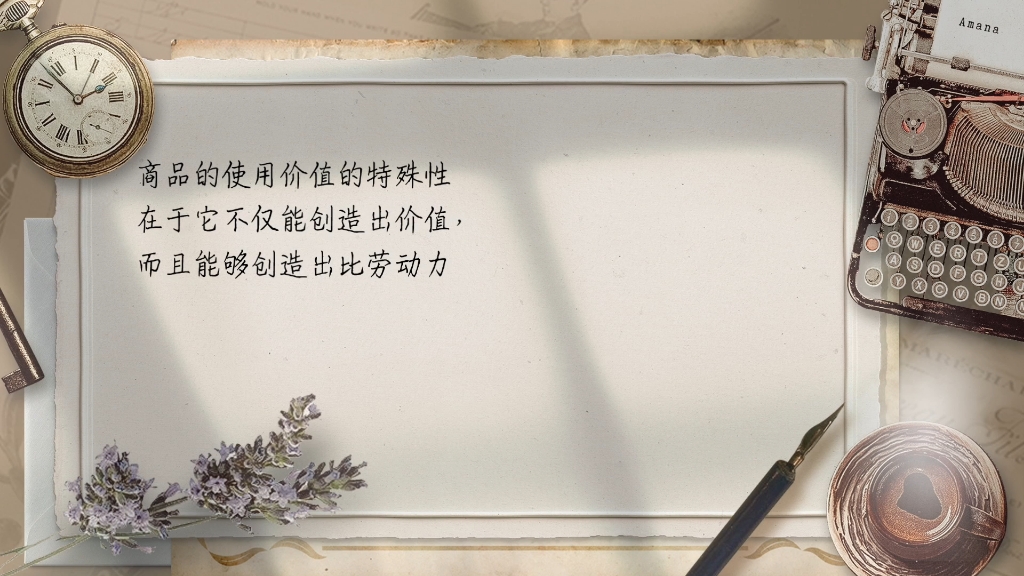 Amana
商品的使用价值的特殊性
在于它不仅能创造出价值，
而且能够创造出比劳动力